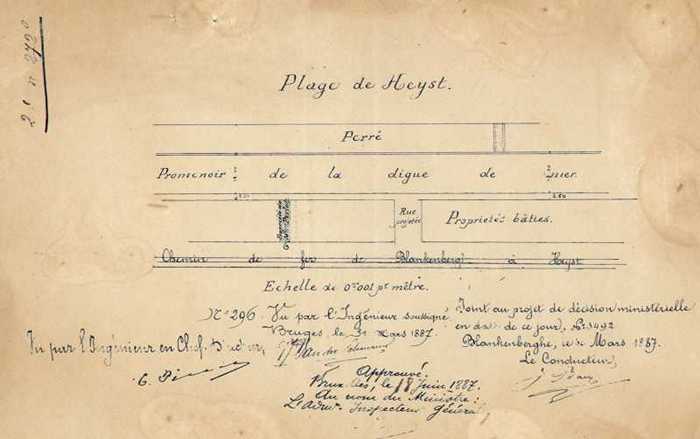 2.1 n 2720
Plage de Heyst.
Perré
Promenoir de la digue de mer.
Rue projetée
Propriétés bâties.
Chemin de fer de Blankenberghe à Heyst
Echelle de 0m001 pr mètre.
N° 296. Vu par l'Ingénieur soussigné
Bruges le 31 Mars 1887.
Joint au projet de décision ministérielle
en date de ce jour, N° 3492
Blankenberghe, le Mars 1887.
Le Conducteur,
Vu par l'Ingénieur en Chef. Directeur,
Approuvé.
Bruxelles, le 18 Juin 1887.
Au nom du Ministre:
L'adm. Inspecteur Général,